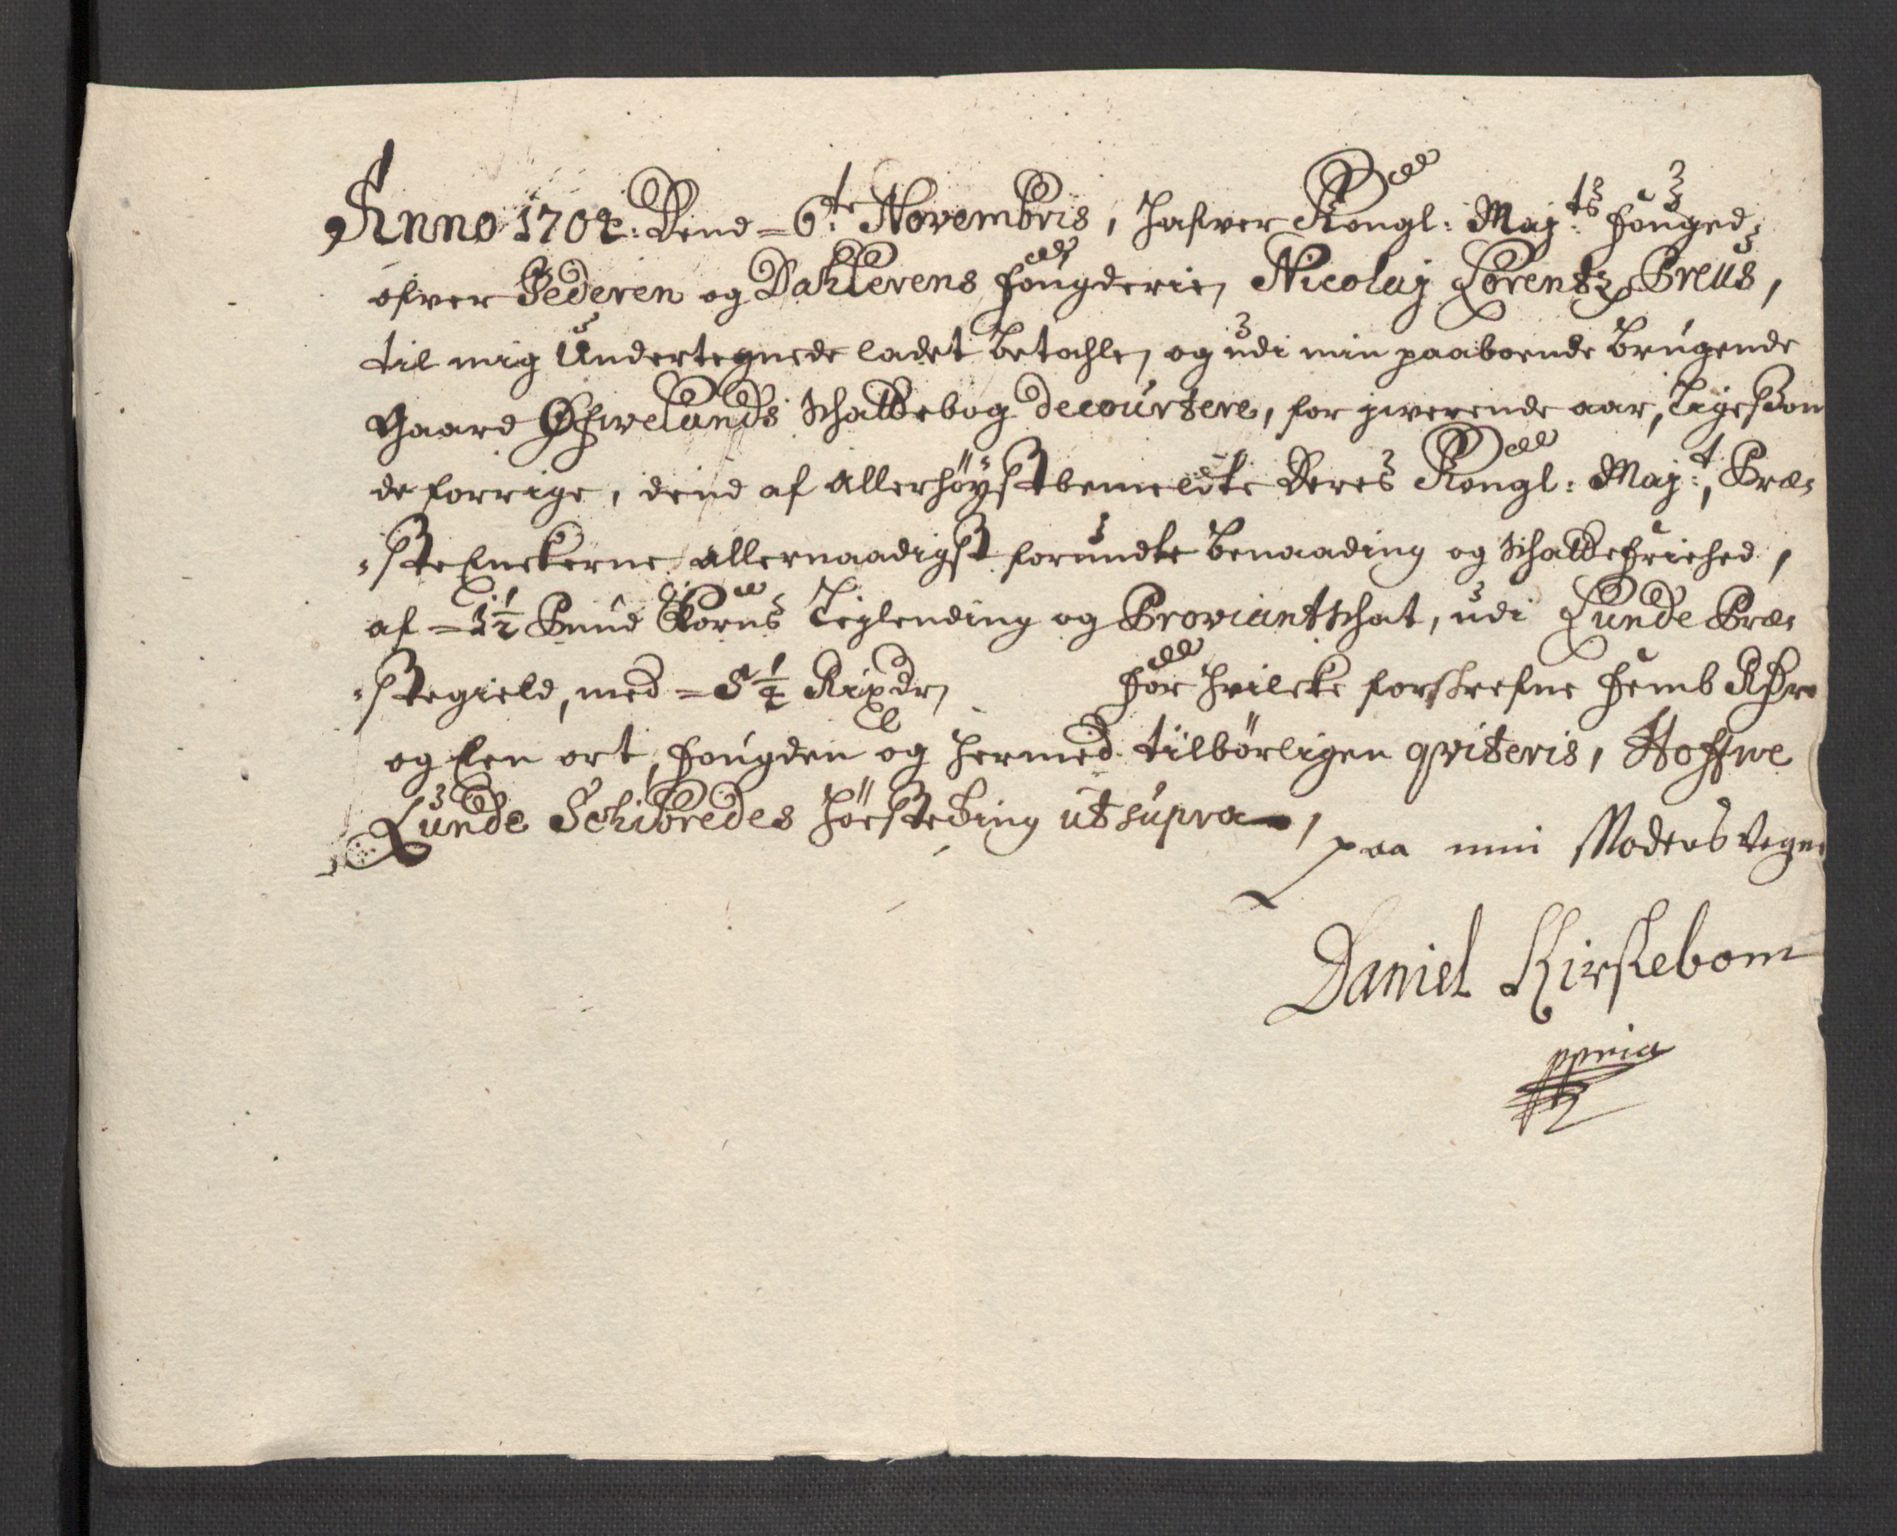 Anno 1704: Dend = 6te Novembris, hafver Kongl: Maj:ts fouged
ofver Jederen og Dahlerens fougderie, Nicolaj Lorentz Preus,
til mig Undertegnede ladet betahle, og udi min paaboende brugende
Gaard Øfwelands Schattebog decourtere, for jwerende aar, ligesom
de forrige, dend af Allerhöyst bemeldte Deres Kongl: Maj:t, Præ-
-steEnckerne allernaadigst forundte benaading og Schattefriehed,
af = 1½ Pund Korns Leglending og Proviantschat, udi Lunde Præ-
-stegield, med = 5¼ Rixdr, for hvilcke forskrefne femb Rdr
og Een ort, fougden og hermed tilbörligen qviteris, Hoffwe
Lunde Schibredes Hösteting ut supra,
paa min Moders Vegne
Daniel Kirskebom
ppria